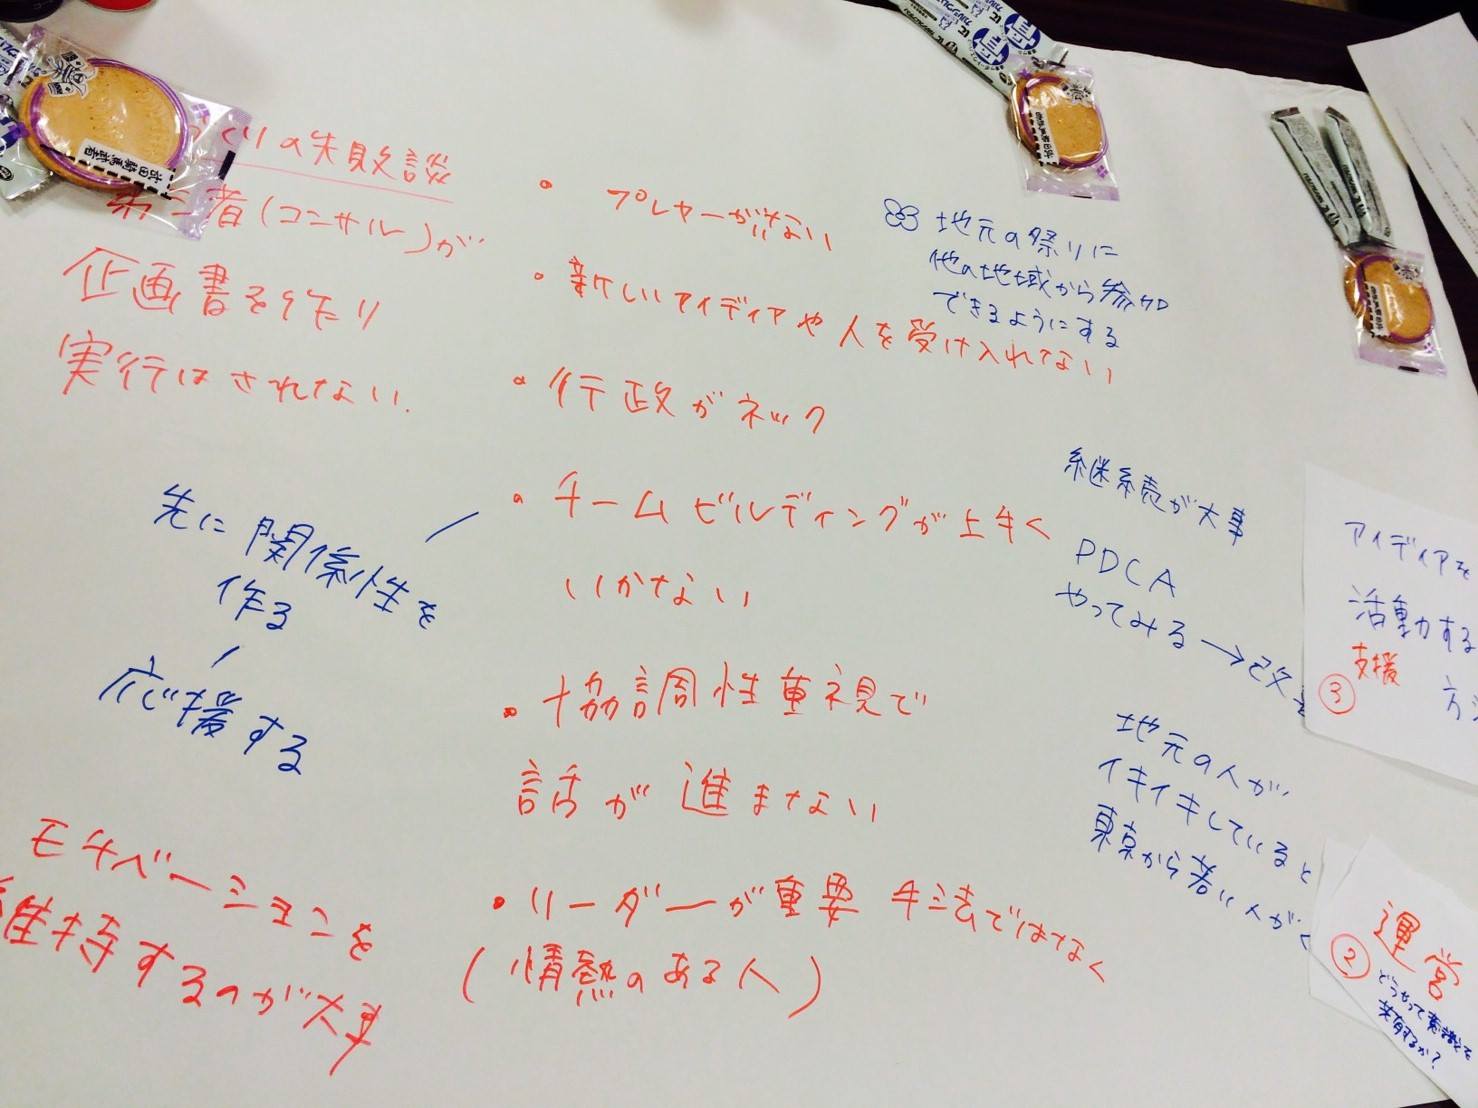 くりの失敗談
者(コンサル)が
企画書を作り
実行はされない.
先に関係性を
作る
応援する
モチベーションを
維持するのが大事
• プレヤーがいない
• 新しいアイディアや人を受け入れない
• 行政がネック
• チームビルディングが上手く
いかない
• 協調性重視で
話が進まない
• リーダーが重要 手法ではなく
(情熱のある人)
地元の祭りに
他の地域から参加
できるようにする
継続が大事
PDCA
やってみる→改
地元の人が
イキイキしていると
東京から若い人がく
アイディアを
活動する
支援 方
③
運営
②
どうやって意識を
共有するか?